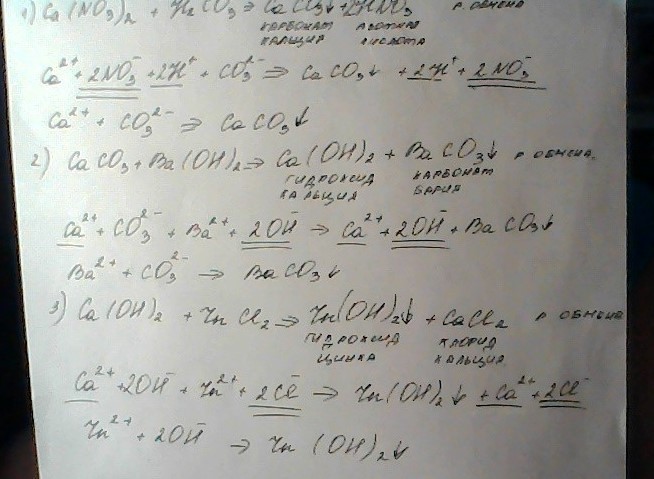 1) Ca(NO₃)₂ + H₂CO₃ ⇒ CaCO₃↓ + 2HNO₃ р. обмена
карбонат азотная
кальция кислота
Ca²⁺ + 2NO₃⁻ + 2H⁺ + CO₃²⁻ ⇒ CaCO₃↓ + 2H⁺ + 2NO₃⁻
Ca²⁺ + CO₃²⁻ ⇒ CaCO₃↓
2) CaCO₃ + Ba(OH)₂ ⇒ Ca(OH)₂ + BaCO₃↓ р обмена.
гидроксид карбонат
кальция бария
Ca²⁺ + CO₃²⁻ + Ba²⁺ + 2OH⁻ ⇒ Ca²⁺ + 2OH⁻ + BaCO₃↓
Ba²⁺ + CO₃²⁻ → BaCO₃↓
3) Ca(OH)₂ + ZnCl₂ ⇒ Zn(OH)₂↓ + CaCl₂ р обмена
гидроксид хлорид
цинка кальция
Ca²⁺ + 2OH⁻ + Zn²⁺ + 2Cl⁻ → Zn(OH)₂↓ + Ca²⁺ + 2Cl⁻
Zn²⁺ + 2OH⁻ → Zn(OH)₂↓